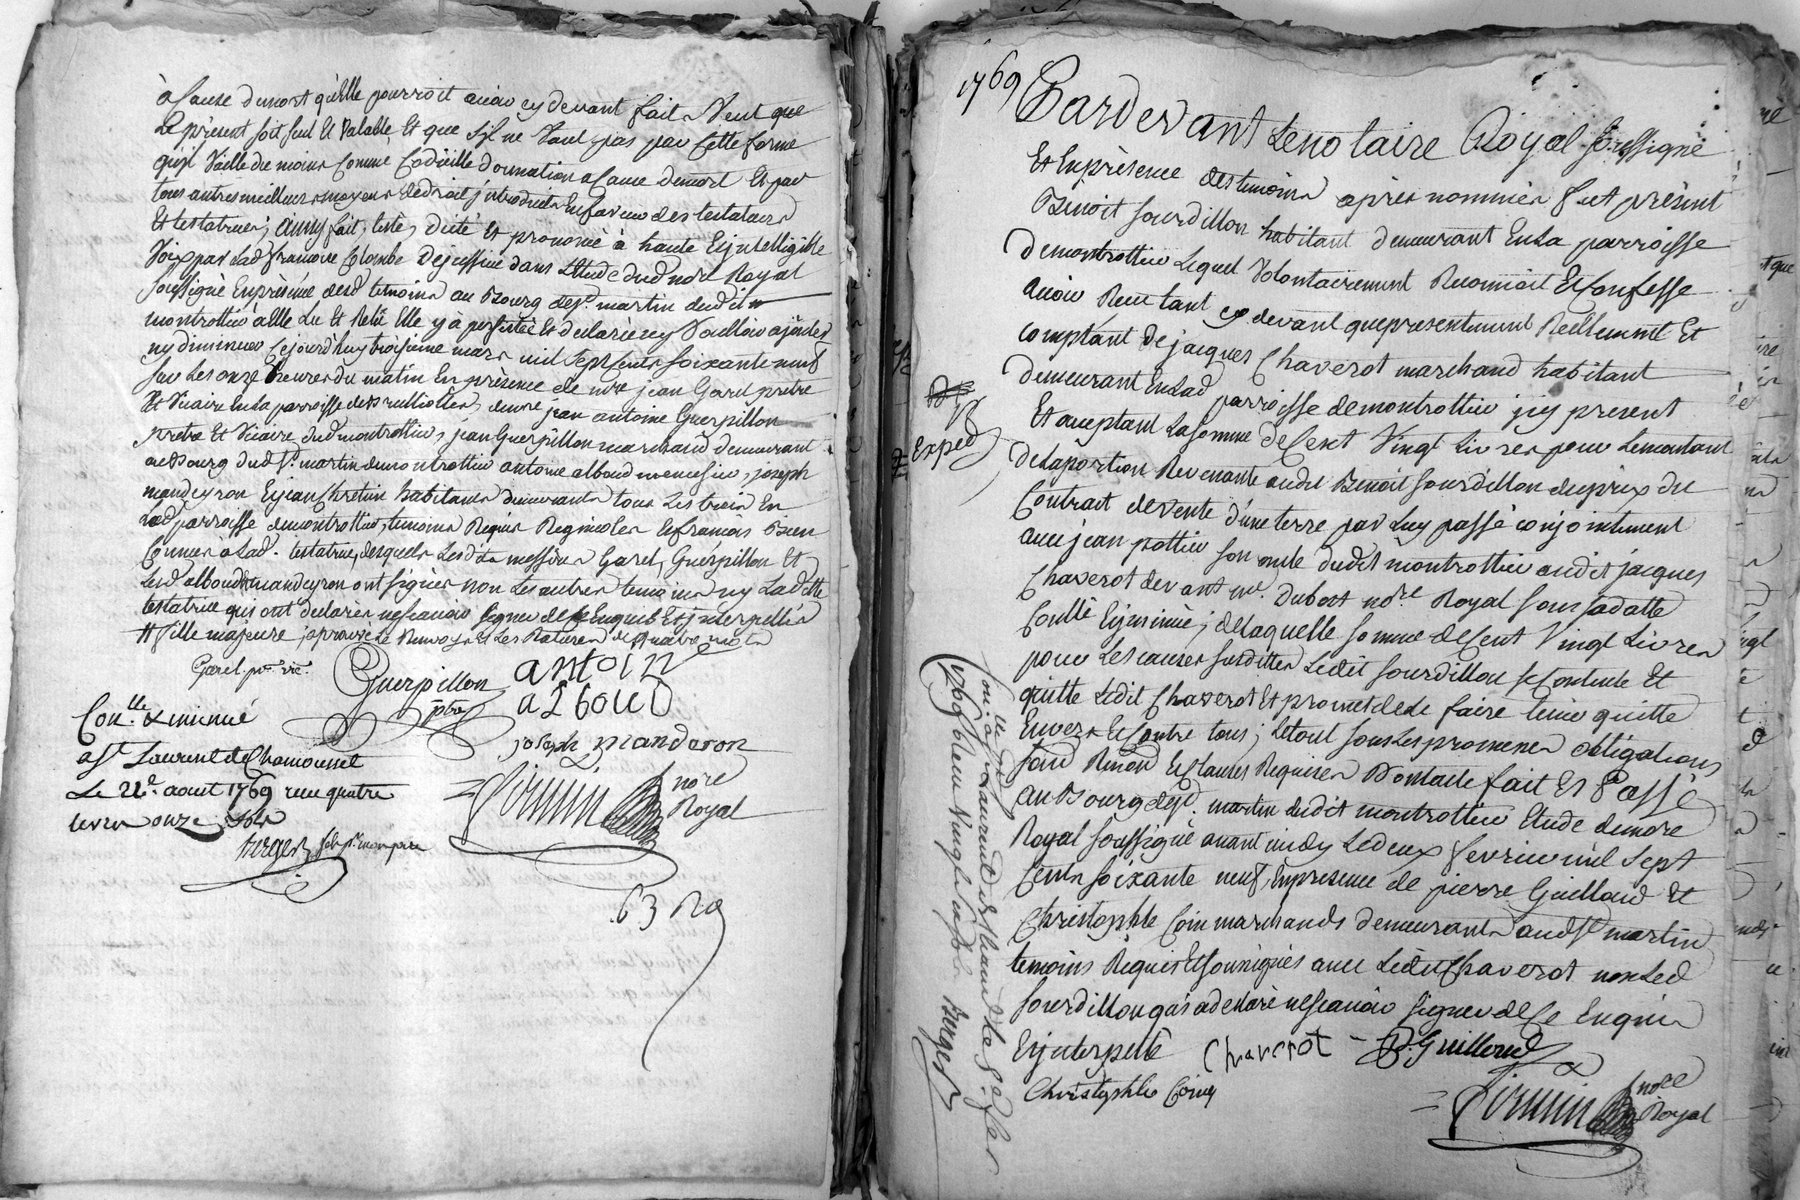 à Cause demort qu'elle pourroit avoir cy devant fait Veut que
Le présent soit seul Et Valable Et que s'il ne Vaut pas par Cette forme
qu'il Vaille du moins Comme Codicille donnation a Cause demort Et par
tous autres meilleurs moyens dedroit introduits En faveur des testateurs
Et testatrices, ainsy fait, testé, dicté Et prononcé à haute Et jntelligible
Voix par Lad. françoise Colombe Dejussieu dans L'Etude dud. nore Royal
soussigné Enprésence desd. temoins au Bourg de St. martin dudit
montrottier à Elle Lu Et Relu Elle y à persisté Et declaré n'y Vouloir ajouter
ny diminuer Cejourd'huy troisieme mars mil sept cents soixante neuf
sur Les onze heures du matin En présence de mre jean Garel pretre
Et Vicaire En La parroisse de Brullioles, de mre jean antoine Guerpillon
pretre Et Vicaire dud. montrottier, jean Guerpillon marchand demeurant
au Bourg dud. St. martin demontrottier antoine alboud menuisier, joseph
mandeyron Et jean Chretin habitants demeurants tous Les trois En
Lad. parroisse demontrottier, temoins Requis Regnicoles Et francois Bien
Connus à Lad. testatrice, desquels Lesdits messires Garel, Guerpillon Et
Lesd. alboud Et mandeyron ont signés non Les autres temoins ny Ladite
testatrice qui ont declarés ne sçavoir signer de Ce Enquis Et jnterpellés
# fille majeure, approuvé Le Renvoy Et Les Ratures de quatre mots
Garel ptre vic.
Guerpillon
ptre
antoin
alboud
joseph manderon
Con.lle & minuté
a St Laurent de Chamousset
Le 22e. aout 1769 reçu quatre
livres onze sols
Berger
nore
Royal
63 Ro
1769
Pardevant Le notaire Royal soussigné
Et Enprésence des temoins après nommés fut présent
Benoit sourdillon habitant demeurant En La parroisse
demontrottier Lequel Volontairement Reconnoit Et Confesse
avoir Reçu tant cy devant que presentement Réellement Et
comptant de jacques Chaverot marchand habitant
demeurant En Lad. parroisse de montrottier jcy present
Et acceptant La somme de Cent Vingt Livres pour Le montant
de La portion Revenante audit Benoit sourdillon du prix du
Contrat de vente d'une terre par Luy passé conjointement
avec jean pottier son oncle dudit montrottier audit jacques
Chaverot devant me. Dubost nore. Royal sous sa datte
Collé Et jnsinué; de laquelle somme de Cent Vingt Livres
pour Les causes susdittes Ledit sourdillon se Contente Et
quitte Ledit Chaverot Et promet de Le faire tenir quitte
Envers Et Contre tous; Le tout sous Les promesses obligations
Royal soussigné avant midy Le deux fevrier mil sept
Cents soixante neuf, Enpresence de pierre Guilloud Et
Christophle Coin marchands demeurants aud. St. martin
temoins Requis Et soussignés avec Ledit Chaverot non Led.
sourdillon qui a declaré ne sçavoir signer de Ce Enquis
Et jnterpellé
Chaverot
P. Guilloud
Christophle Coin
nore
Royal
Exped
Berger